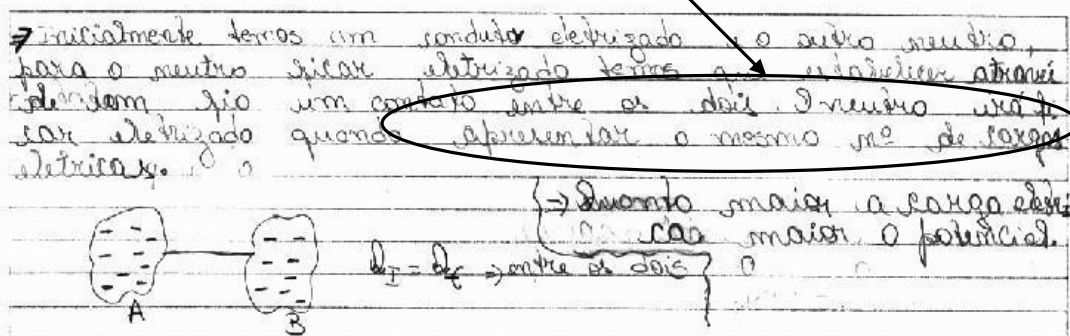 ⇒ Inicialmente temos um conduto eletrizado e o outro neutro,
para o neutro ficar eletrizado temos que estabelecer atravéi
de um fio um contato entre os dois. O neutro irá fi
car eletrizado quando apresentar o mesmo nº de cargas
eletricas.
→ Quanto maior a carga elétri
ca maior o potencial.
Q_I = Q_f ⇒ entre os dois
A
B